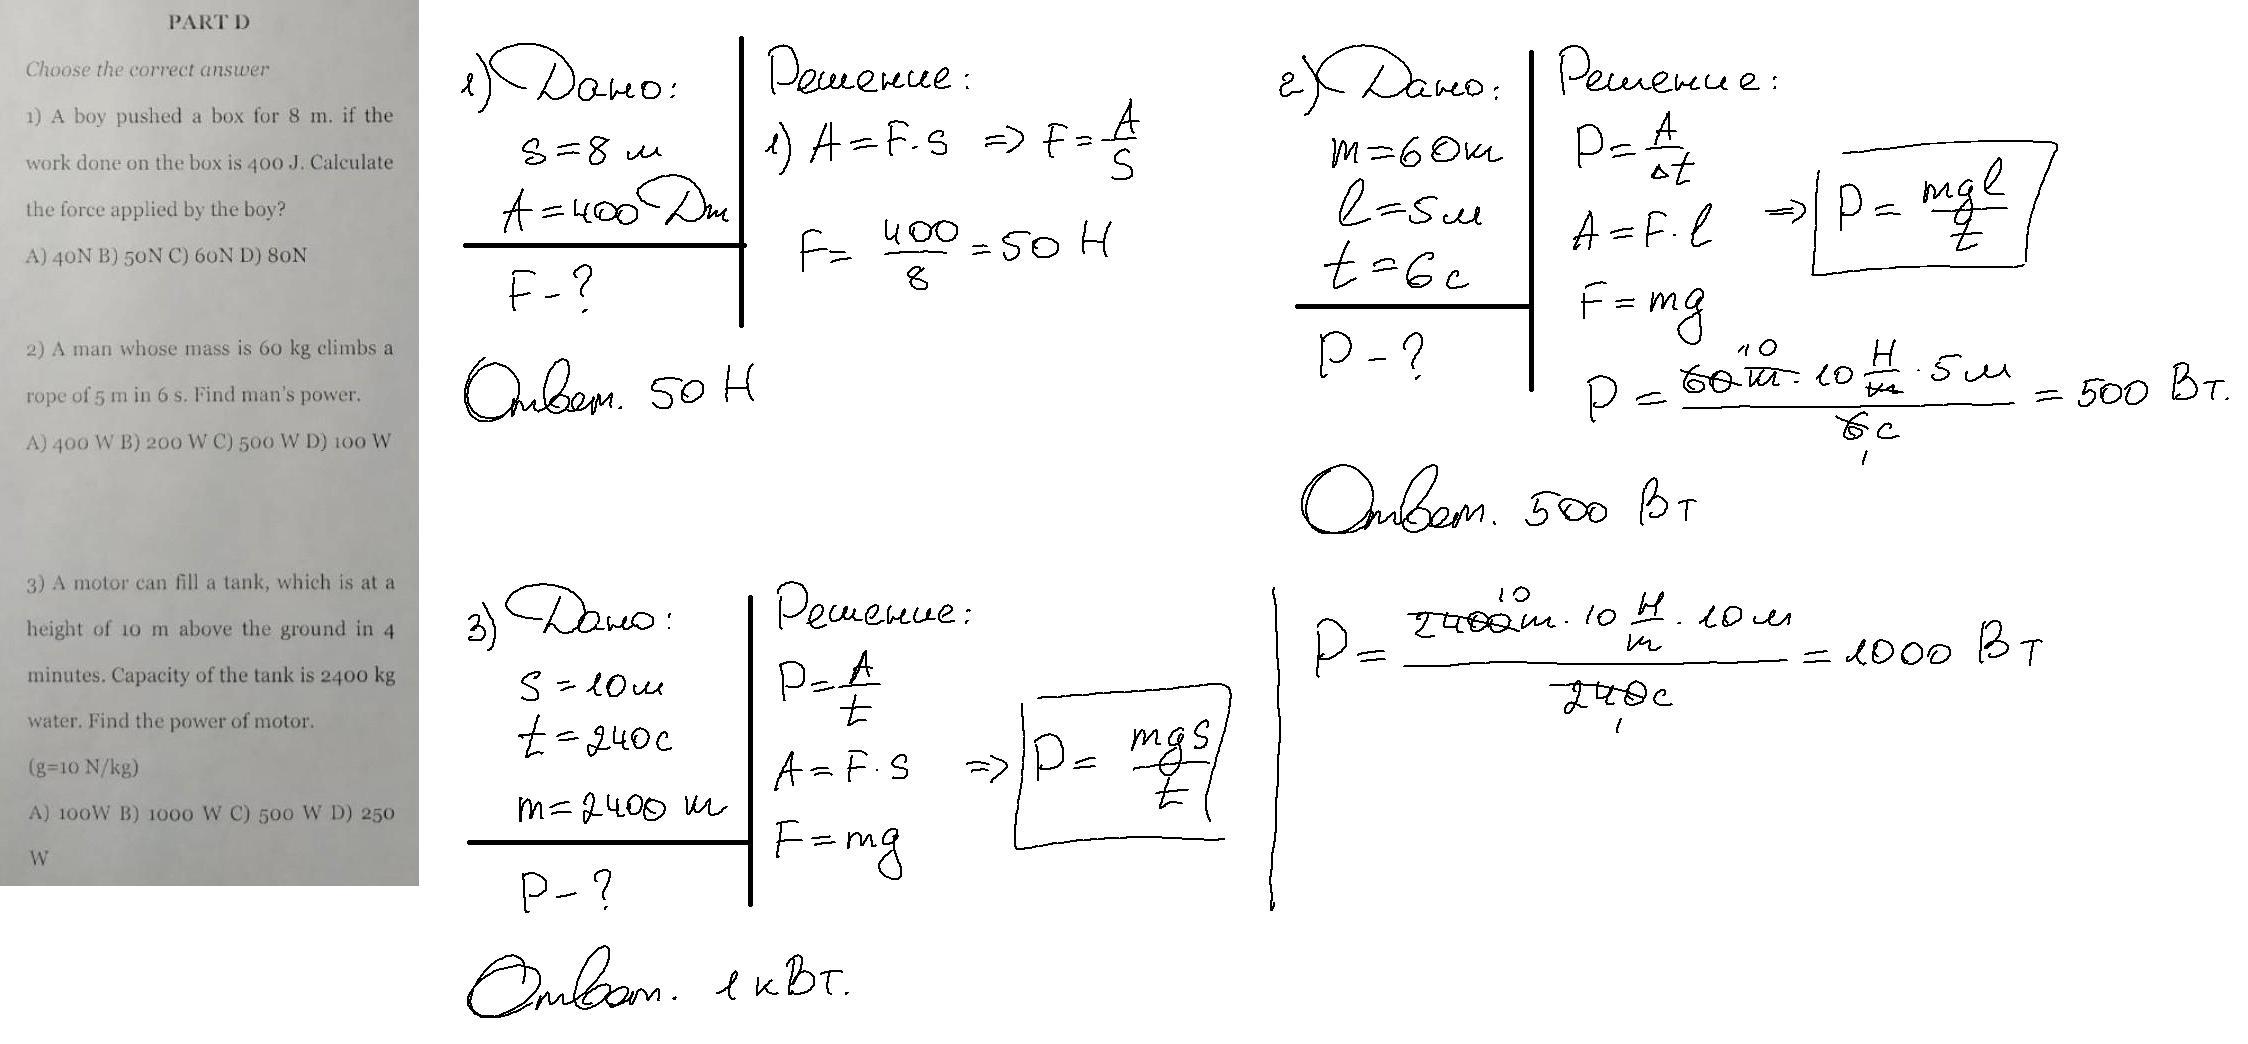 PART D
Choose the correct answer
1) A boy pushed a box for 8 m. if the
work done on the box is 400 J. Calculate
the force applied by the boy?
A) 40N B) 50N C) 60N D) 80N
2) A man whose mass is 60 kg climbs a
rope of 5 m in 6 s. Find man's power.
A) 400 W B) 200 W C) 500 W D) 100 W
3) A motor can fill a tank, which is at a
height of 10 m above the ground in 4
minutes. Capacity of the tank is 2400 kg
water. Find the power of motor.
(g=10 N/kg)
A) 100W B) 1000 W C) 500 W D) 250
W
1) Дано:
s = 8 м
A = 400 Дж
F - ?
Решение:
1) A = F · s => F = A/S
F = 400/8 = 50 Н
Ответ. 50 Н
2) Дано:
m = 60 кг
l = 5 м
t = 6 с
P - ?
Решение:
P = A/Δt
A = F · l => P = mgl/t
F = mg
P = 60 кг · 10 Н/кг · 5 м / 6 с = 500 Вт.
10
1
Ответ. 500 Вт
3) Дано:
S = 10 м
t = 240 с
m = 2400 кг
P - ?
Решение:
P = A/t
A = F · s => P = mgs/t
F = mg
P = 2400 кг · 10 Н/кг · 10 м / 240 с = 1000 Вт
10
1
Ответ. 1 кВт.